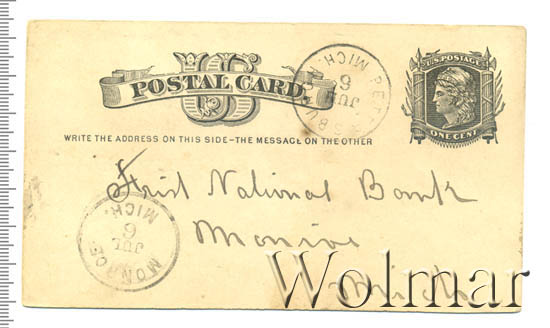 US
POSTAL CARD.
U.S. POSTAGE
ONE CENT
PETERSBURG MICH.
JUL
6
WRITE THE ADDRESS ON THIS SIDE-THE MESSAGE ON THE OTHER
First National Bank
Monroe
Mich
MONROE MICH.
JUL
6
Wolmar